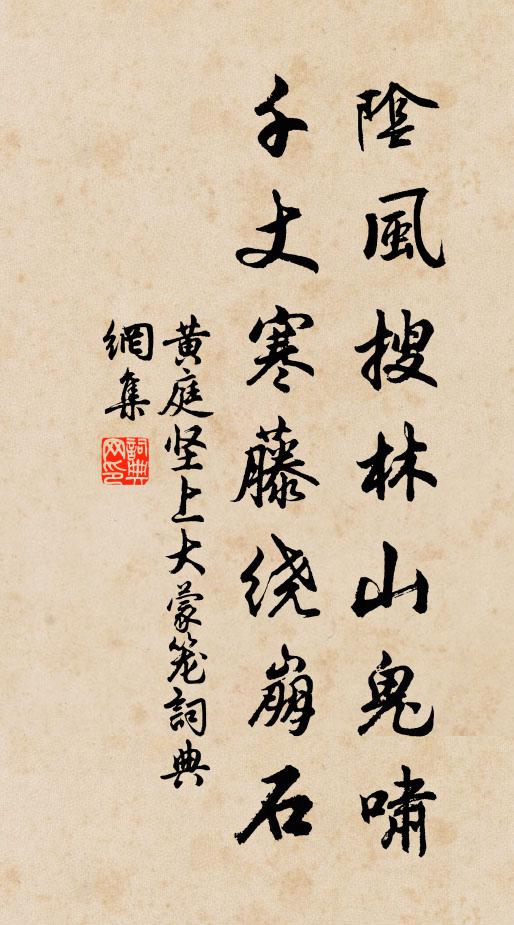 陰風搜林山鬼嘯
千丈寒藤绕崩石
黄庭坚上大蒙笼詞典
網集
詞典
网印